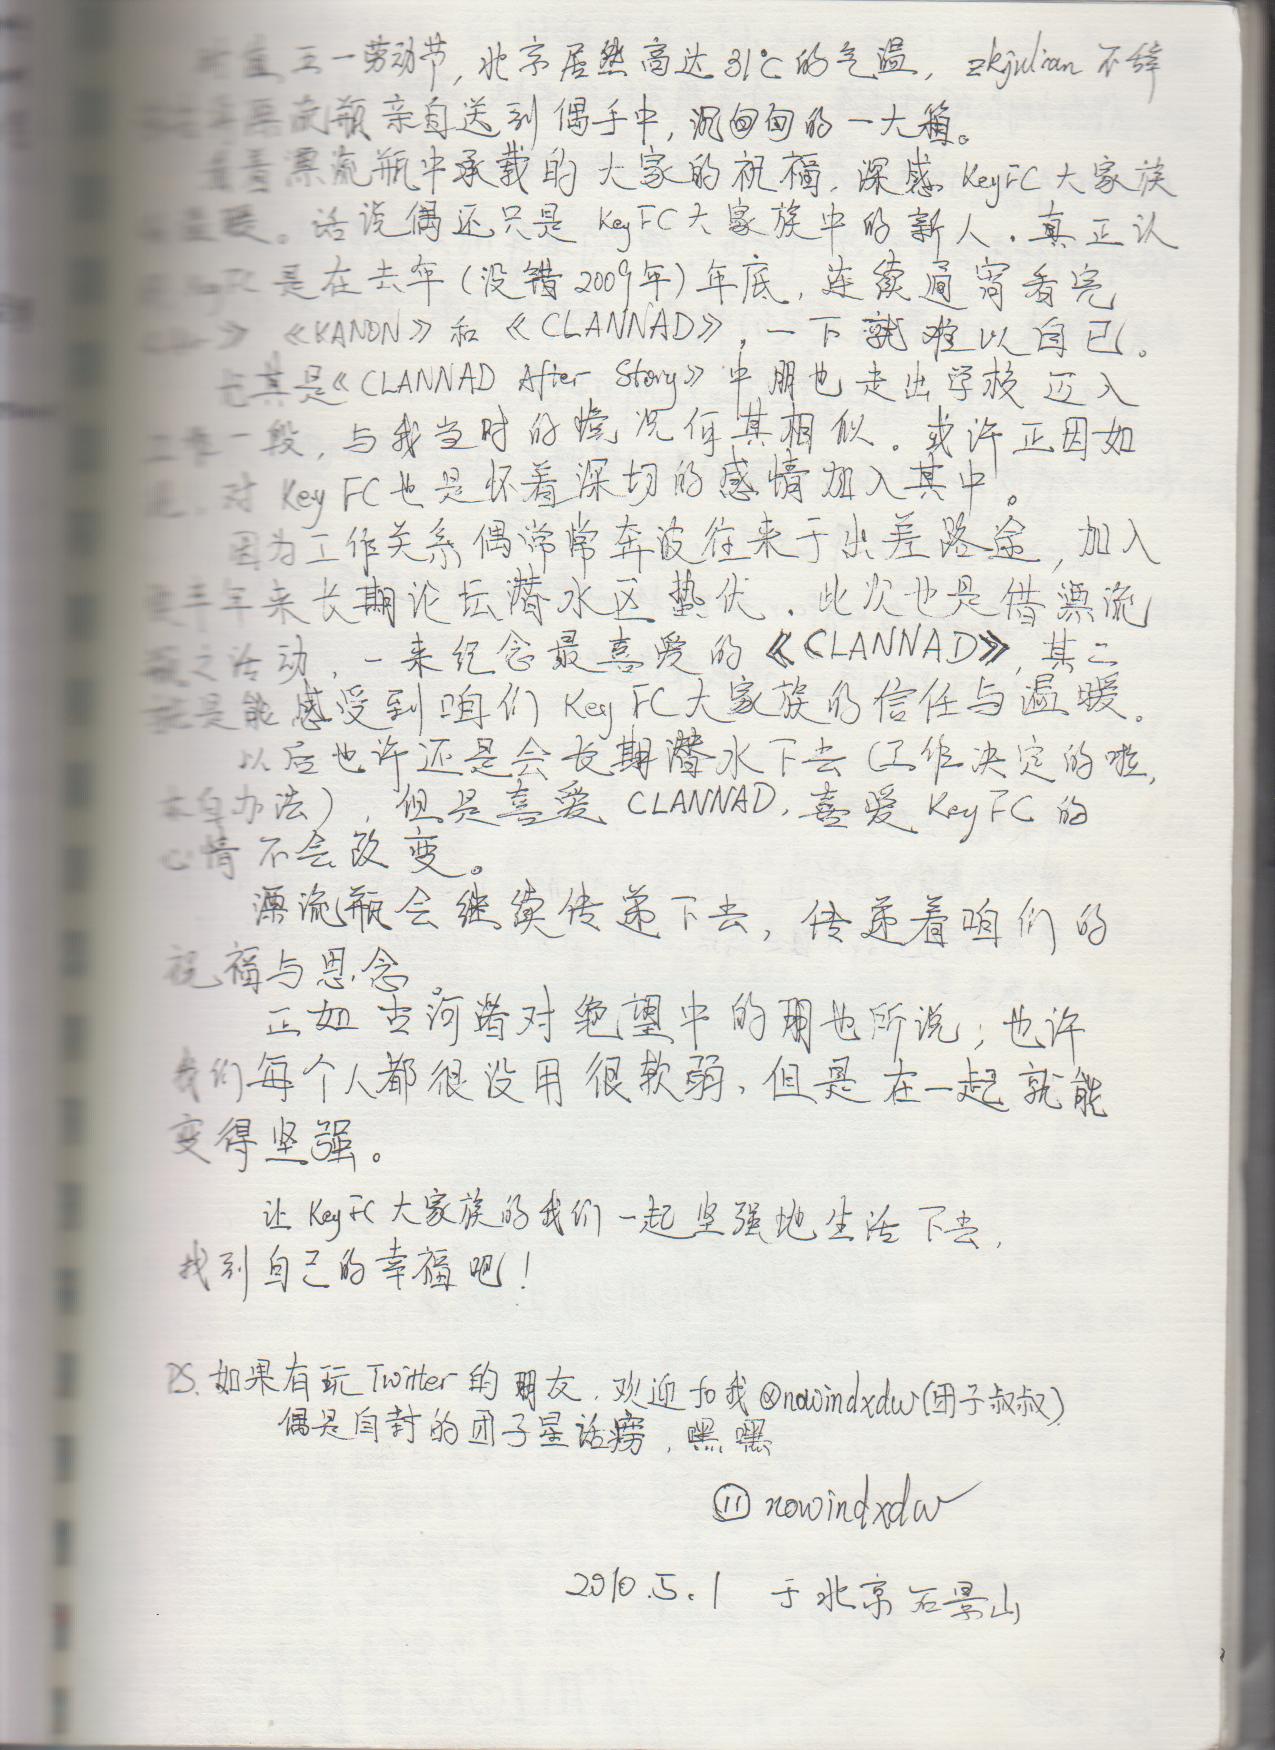 时值五一劳动节，北京居然高达31℃的气温，zkjulian不辞
漂流瓶亲自送到偶手中，沉甸甸的一大箱。
看着漂流瓶中承载的大家的祝福，深感KeyFC大家族
温暖。话说偶还只是KeyFC大家族中的新人，真正认
KeyFC是在去年（没错2009年）年底，连续通宵看完
》《KANON》和《CLANNAD》，一下就难以自已。
尤其是《CLANNAD After Story》中朋也走出学校迈入
工作一段，与我当时的境况何其相似。或许正因如
此，对KeyFC也是怀着深切的感情加入其中。
因为工作关系偶常常奔波往来于出差路途，加入
半年来长期论坛潜水区蛰伏，此次也是借漂流
瓶之活动，一来纪念最喜爱的《CLANNAD》，其二
就是能感受到咱们KeyFC大家族的信任与温暖。
以后也许还是会长期潜水下去（工作决定的啦，
木自办法），但是喜爱CLANNAD，喜爱KeyFC的
心情不会改变。
漂流瓶会继续传递下去，传递着咱们的
祝福与思念。
正如古河渚对绝望中的朋也所说；也许
我们每个人都很没用很软弱，但是在一起就能
变得坚强。
让KeyFC大家族的我们一起坚强地生活下去，
找到自己的幸福吧！
PS.如果有玩Twitter的朋友，欢迎fo我@nowindxdw(团子叔叔)
偶是自封的团子星话痨，嘿嘿
nowindxdw
2010.5.1 于北京石景山